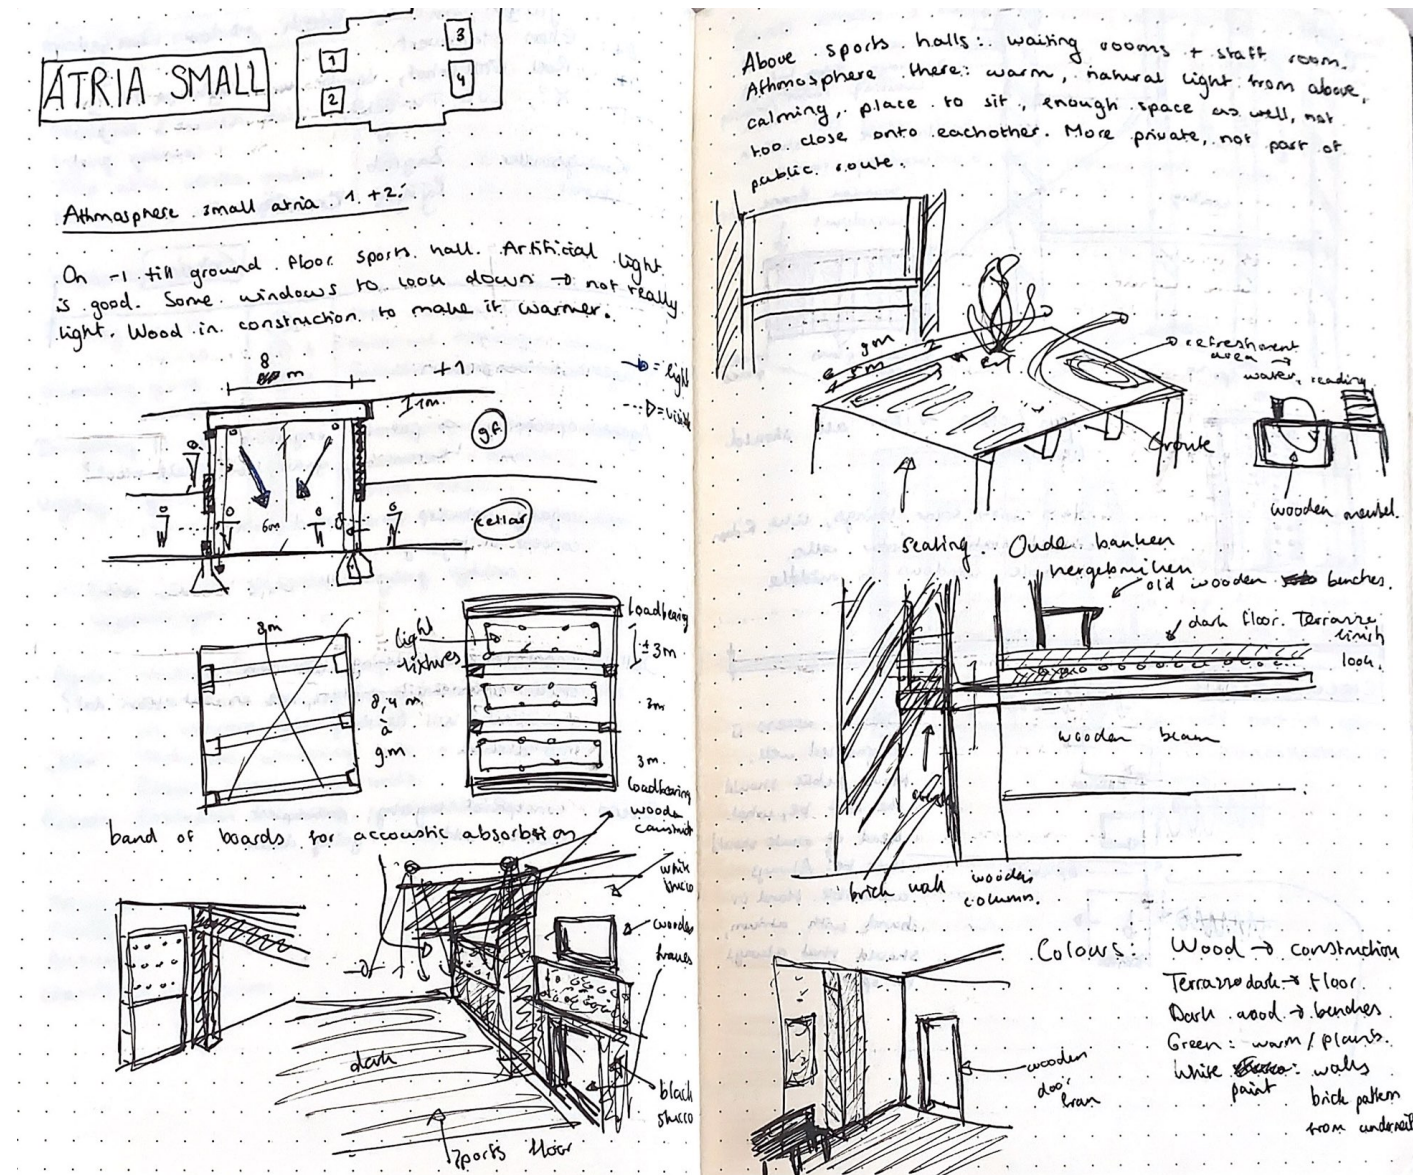 ATRIA SMALL
1
2
3
4
Athmosphere small atria 1 + 2:
On -1 till ground floor sports hall. Artificial light
is good. Some windows to look down → not really
light. Wood in construction to make it warmer.
8 m
+1
1m
= light
= visible
g.f.
6m
cellar
8m
8,4 m
a
9m
light
fixtures
loadbearing
± 3m
3m
3m.
loadbearing
wooden
construct
band of boards for accoustic absorbtion
white
stucco
wooden
frames
dark
black
stucco
sports floor
Above sports halls: waiting rooms + staff room.
Athmosphere there: warm, natural light from above,
calming, place to sit, enough space as well, not
too close onto eachother. More private, not part of
public route.
9m
8m
refreshment
area →
water, reading
route
wooden meubel.
seating. Oude banken
hergebruiken
old wooden benches.
dark floor. Terrazzo
finish
look.
wooden beam
brick wall
wooden
column.
wooden
door
Colours: Wood → construction
Terrazzo dark → floor
Dark wood → benches
Green: warm / plants.
White paint: walls
brick pattern
from underneath